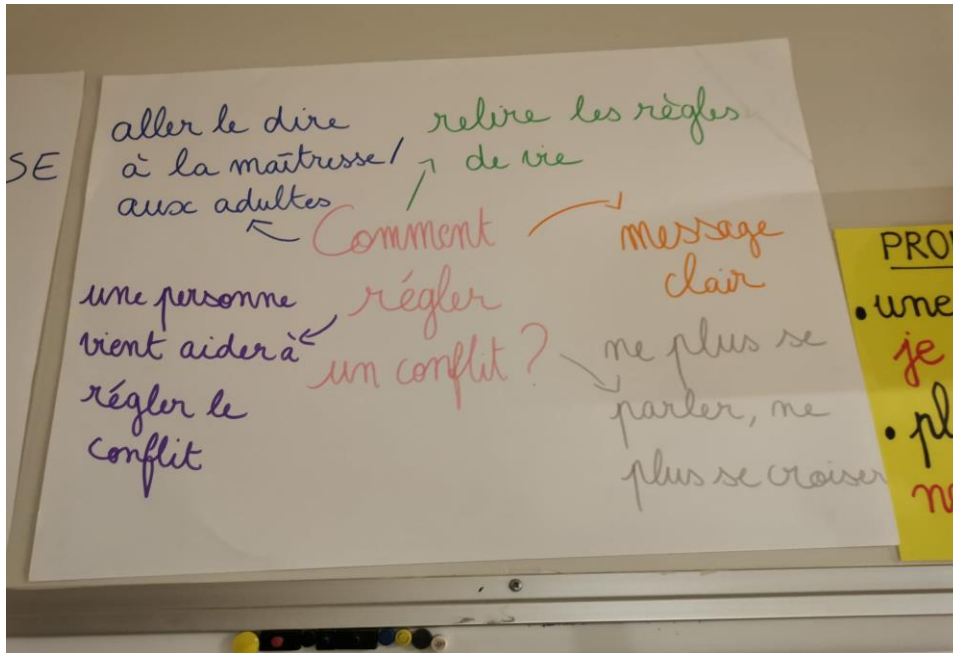 SE
aller le dire
à la maîtresse/
aux adultes
relire les règles
de vie
Comment
régler
un conflit ?
message
clair
une personne
vient aider à
régler le
conflit
ne plus se
parler, ne
plus se croiser
• une
je